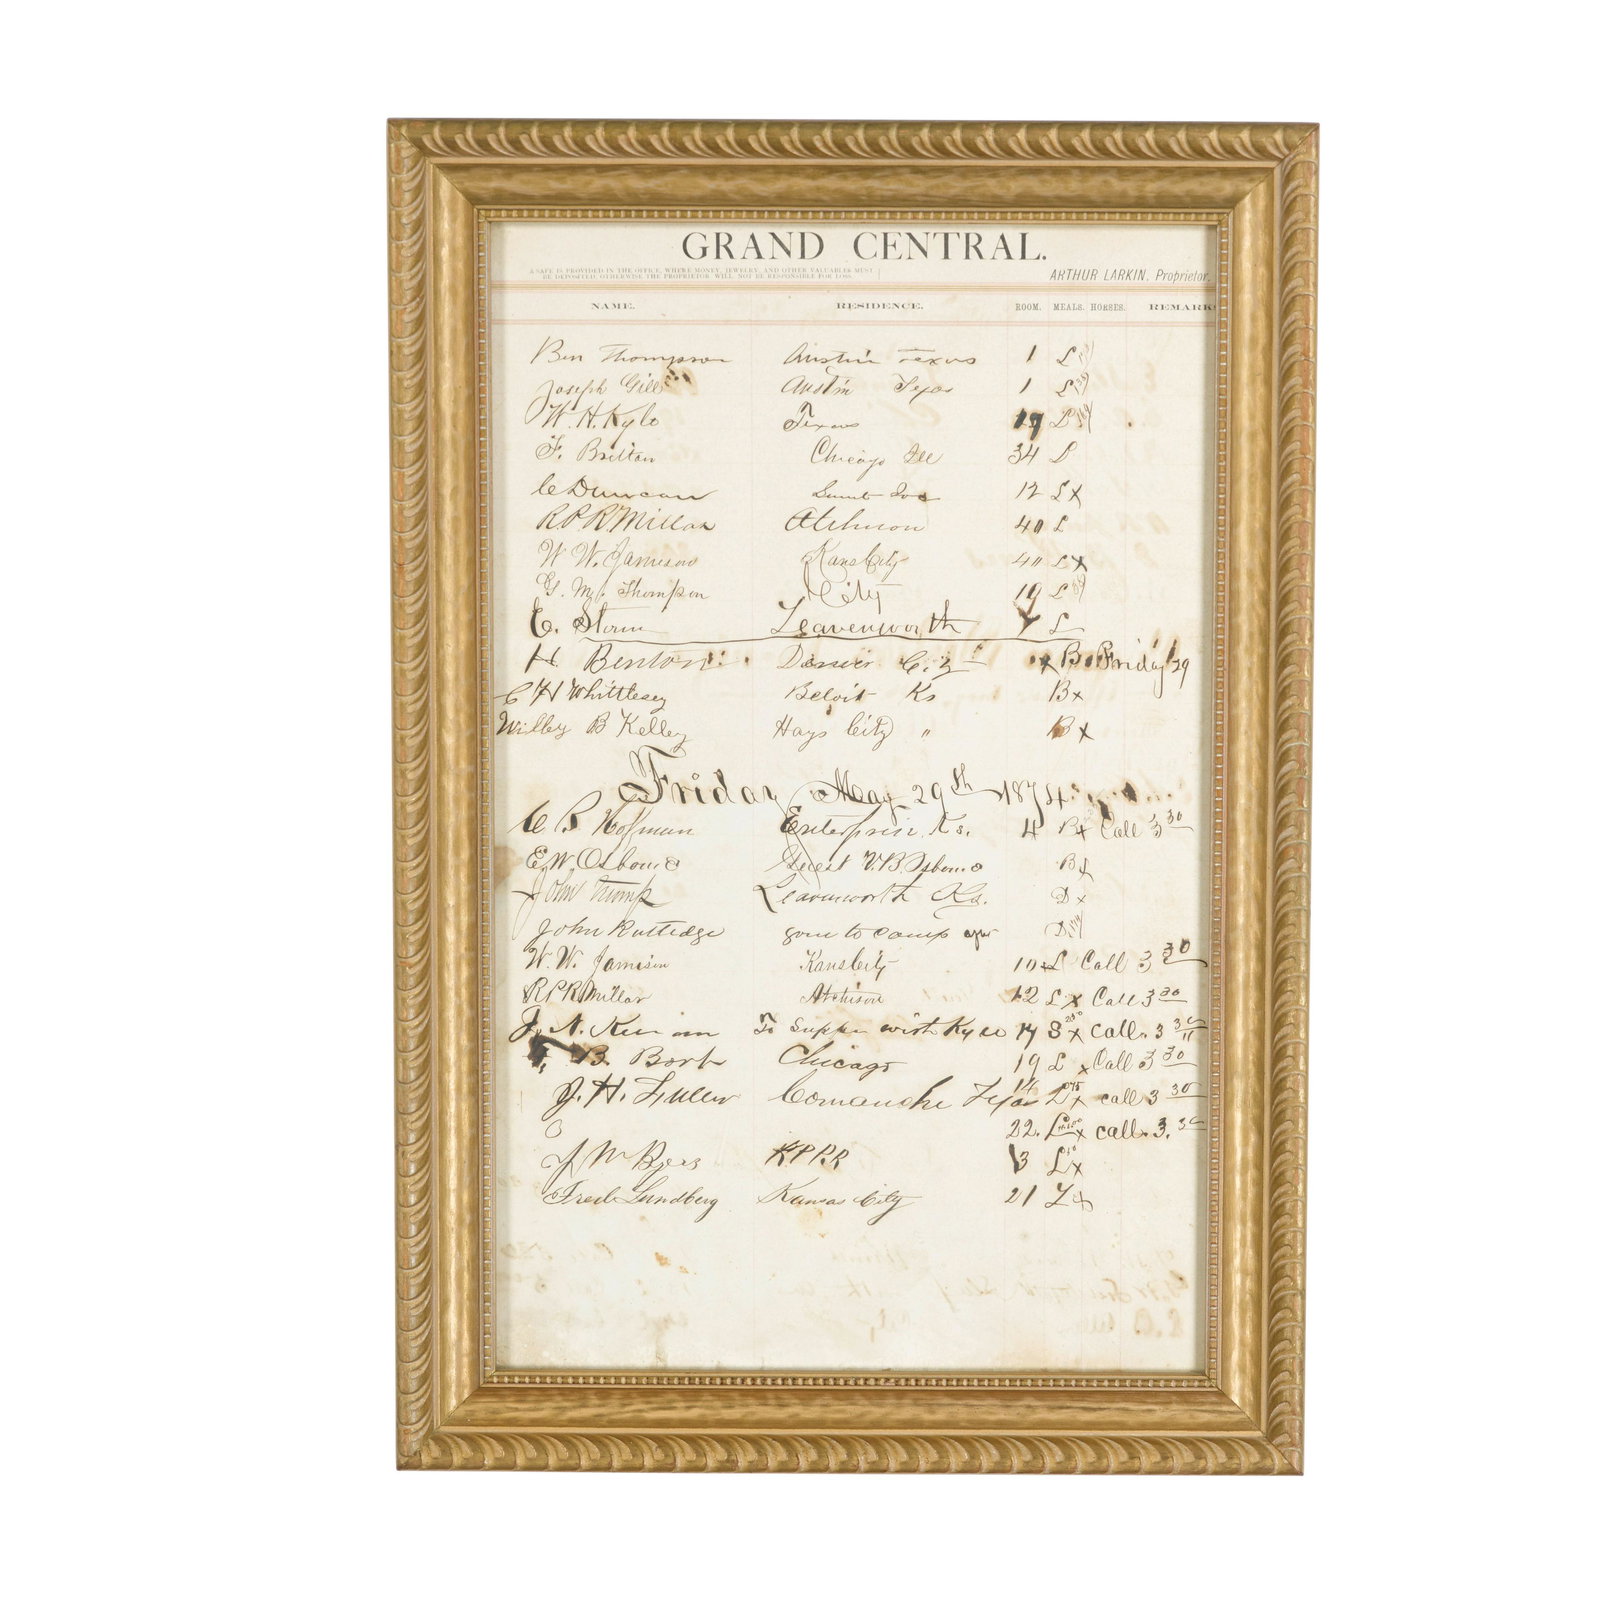 GRAND CENTRAL.
A SAFE IS PROVIDED IN THE OFFICE, WHERE MONEY, JEWELRY, AND OTHER VALUABLES MUST
BE DEPOSITED, OTHERWISE THE PROPRIETOR WILL NOT BE RESPONSIBLE FOR LOSS.
ARTHUR LARKIN, Proprietor.
NAME. RESIDENCE. ROOM. MEALS. HORSES. REMARKS
Ben Thompson Austin Texas 1 L
Joseph Gill Austin Texas 1 L
W. H. Kyle Texas 17 D
F. Britton Chicago Ill 34 D
C Duncan Saint Joe 12 L x
R P R Millar Atchison 40 L
W. W. Jamison Kans City 40 L x
G. M. Thompson City 19 L
C. Storm Leavenworth L
H Benton Denver x B Friday 29
C H Whittlesey Beloit Ks B x
Willey B Kelley Hays City " B x
Friday May 29th 1874
C B Hoffman Enterprise, Ks. 4 B x Call 3 30
E. W. Osborne Guest V. B. Osborne B x
John Trump Leavenworth Ks. D x
John Rutledge gone to camp D
W. W. Jamison Kans City 10 L Call 3 30
R P R Millar Atchison 12 L x Call 3 30
J. N. To Supper with Kyle 14 S x call. 3 30
B. Chicago 19 L x Call 3 30
J. H. Comanche Texas 14 D x call 3 30
22. L x call. 3. 30
J M Byers K P R R 13 L x
Fred Lundberg Kansas City 21 L x